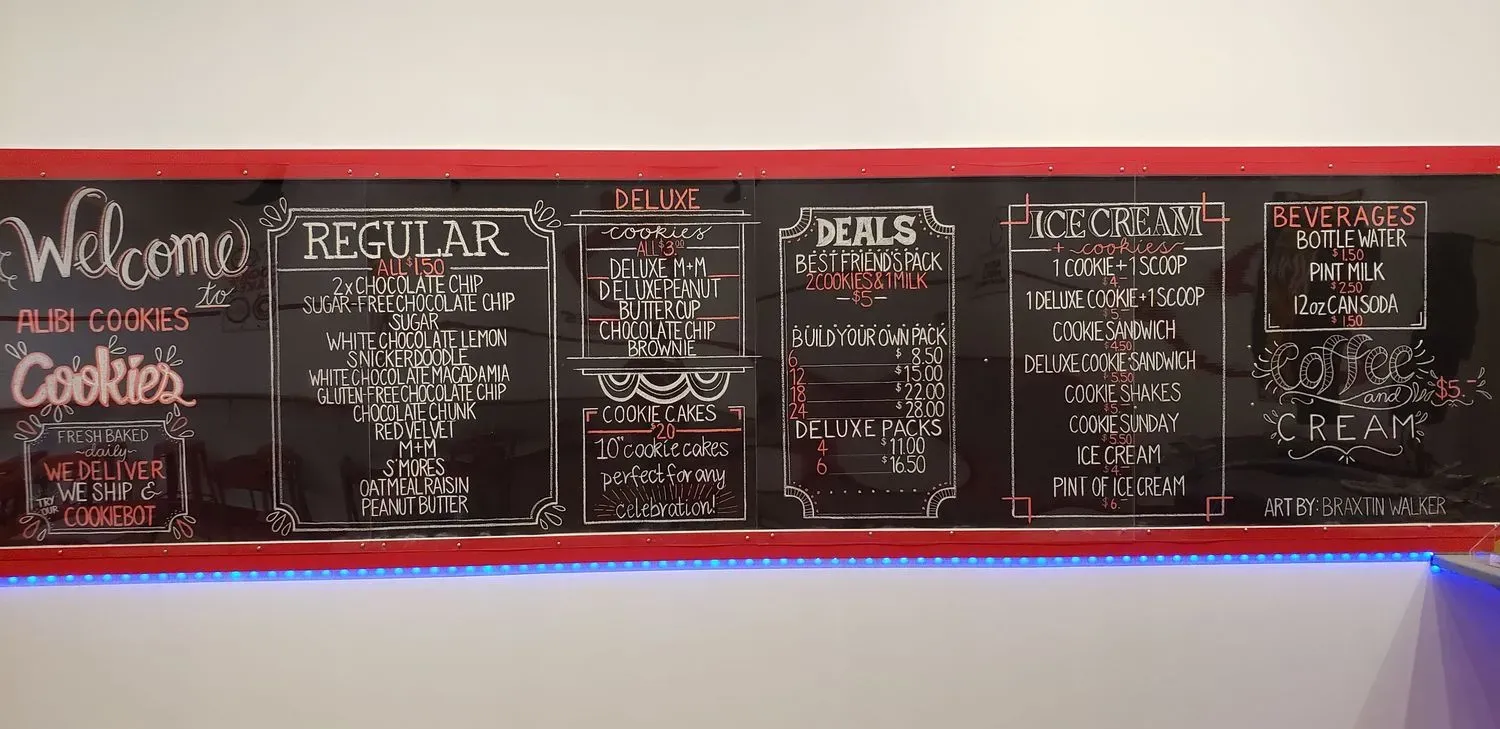 Welcome
to
ALIBI COOKIES
Cookies
FRESH BAKED
~daily~
WE DELIVER
WE SHIP &
TRY OUR
COOKIEBOT
REGULAR
ALL $1.50
2x CHOCOLATE CHIP
SUGAR-FREE CHOCOLATE CHIP
SUGAR
WHITE CHOCOLATE LEMON
SNICKERDOODLE
WHITE CHOCOLATE MACADAMIA
GLUTEN-FREE CHOCOLATE CHIP
CHOCOLATE CHUNK
RED VELVET
M+M
S'MORES
OATMEAL RAISIN
PEANUT BUTTER
DELUXE
cookies
ALL $3.00
DELUXE M+M
DELUXE PEANUT
BUTTER CUP
CHOCOLATE CHIP
BROWNIE
COOKIE CAKES
$20
10" cookie cakes
perfect for any
celebration!
DEALS
BEST FRIEND'S PACK
2 COOKIES & 1 MILK
-$5-
BUILD YOUR OWN PACK
6 $8.50
12 $15.00
18 $22.00
24 $28.00
DELUXE PACKS
4 $11.00
6 $16.50
ICE CREAM
+ cookies
1 COOKIE + 1 SCOOP
$4-
1 DELUXE COOKIE + 1 SCOOP
$5-
COOKIE SANDWICH
$4.50
DELUXE COOKIE SANDWICH
$5.50
COOKIE SHAKES
$5-
COOKIE SUNDAY
$5.50
ICE CREAM
$4-
PINT OF ICE CREAM
$6-
BEVERAGES
BOTTLE WATER
$1.50
PINT MILK
$2.50
12oz CAN SODA
$1.50
Coffee
and
$5.-
CREAM
ART BY: BRAXTIN WALKER